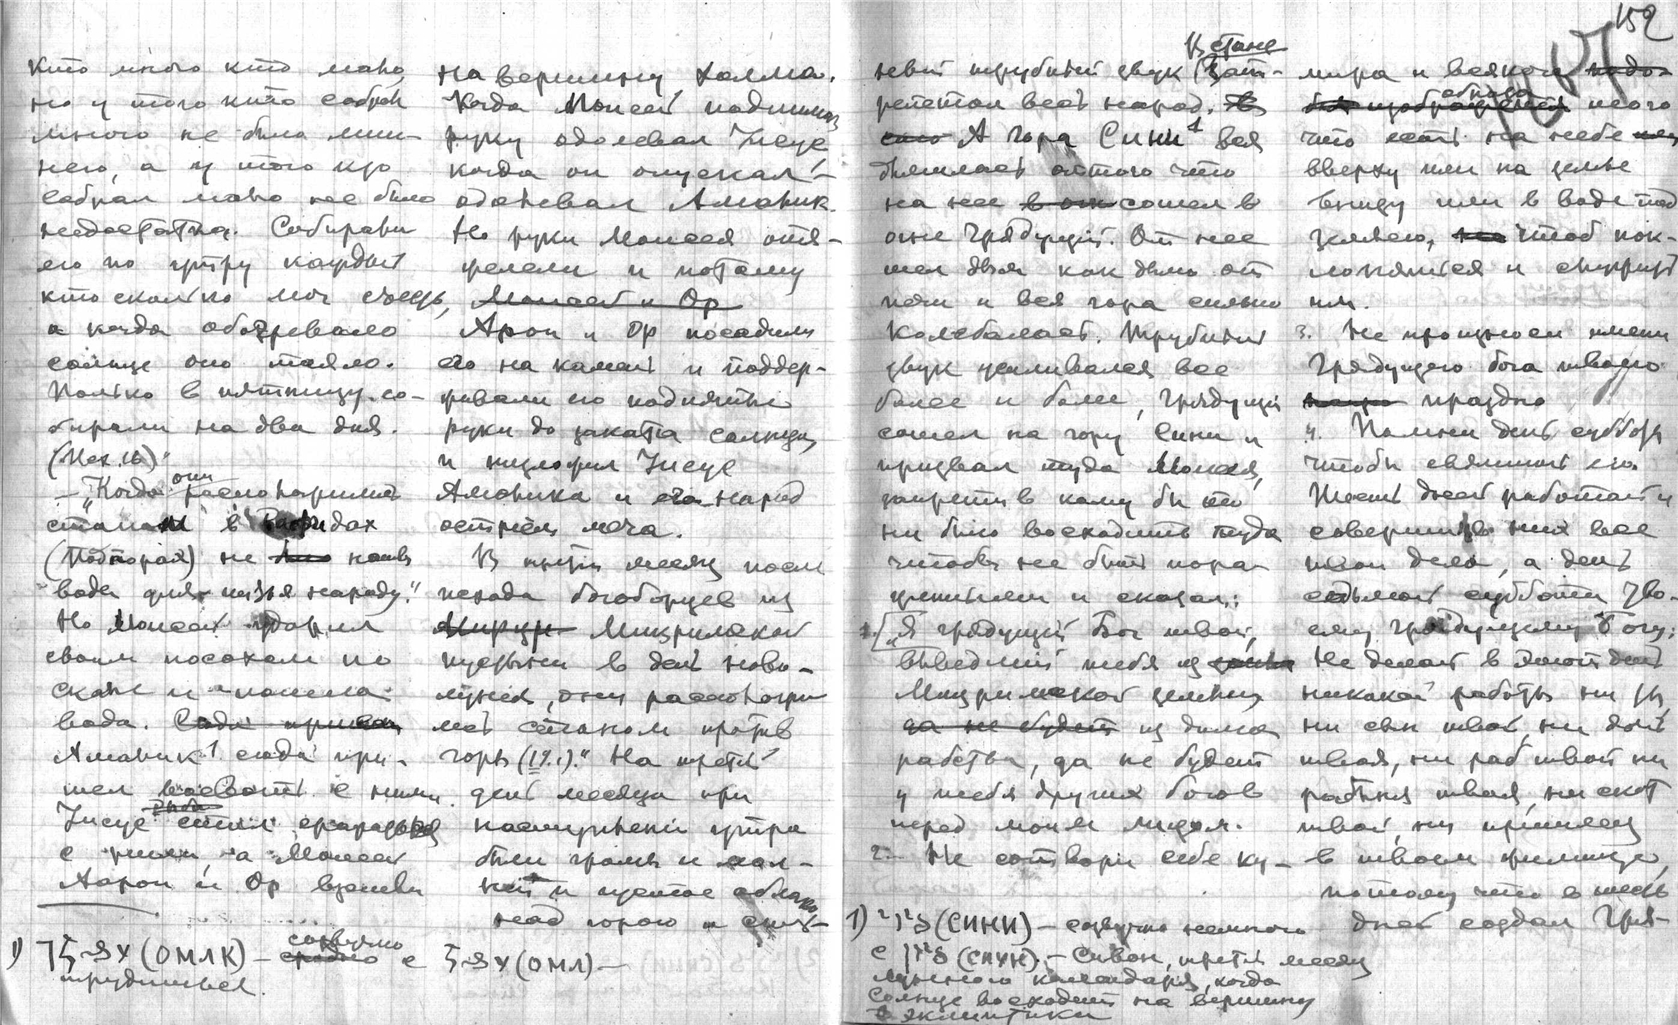 кто много кто мало,
но у того кто собрал
много не было лиш-
него, а у того кто
собрал мало не было
недостатка. Собирали
его по утру каждый
кто сколько мог съесть,
а когда обогревало
солнце оно таяло.
Только в пятницу со-
бирали на два дня.
(Исх. 16)"
— "Когда они расположились
станом в Рефидах
(Подпорах) не было
вода для питья народу."
Но Моисей ударил
своим посохом по
скале и потекла
вода.
Амалик¹ сюда при-
шел воевать с ними.
Иисус стал сражаться
с ними, а Моисей
Аарон и Ор взошли
1) (ОМЛК) — созвучно с (ОМЛ) —
трудиться.
на вершину холма.
Когда Моисей поднимал
руку одолевал Иисус
когда он опускал —
одолевал Амалик.
Но руки Моисея отя-
желели и потому
Моисей и Ор
Арон и Ор посадили
его на камень и поддер-
живали его поднятые
руки до заката солнца,
и низложил Иисус
Амалика и его народ
острием меча.
В третий месяц после
исхода богоборцев из
Мицримской
пустыни в день ново-
луния, они расположи-
лись станом против
горы (19.1)." На третий
день месяца при
наступлении утра
были громы и мол-
нии и густое облако
над горою и силь-
152
В стане
ный трубный звук
репетал весь народ.
А гора Сини¹ вся
дымилась оттого что
на нее сошел в
огне Грядущий. От нее
шел дым как дым от
печи и вся гора сильно
колебалась. Трубный
звук усиливался все
более и более, Грядущий
сошел на гору Сини и
призвал туда Моисея,
запретив кому бы то
ни было восходить туда
чтобы не быть пора-
женным и сказал:
1. "Я грядущий Бог твой,
выведший тебя из
Мицримской земли,
да не будет из дома
рабства, да не будет
у тебя других богов
перед моим лицом.
2. Не сотвори себе ку-
мира и всякого
образа
изображения
что есть на небе
вверху или на земле
внизу или в воде под
землею, чтоб пок-
лоняться и служить
им.
3. Не произноси имени
Грядущего бога твоего
праздно
4. Помни день субботы
чтобы святить его.
Шесть дней работай и
совершай в них все
твои дела, а день
седьмой суббота тво-
ему грядущему Богу:
Не делай в этот день
никакой работы ни ты,
ни сын твой, ни дочь
твоя, ни раб твой ни
рабыня твоя, ни скот
твой, ни пришлец
в твоем жилище,
потому что в шесть
дней создал Гря-
1) סיני (СИНИ) — созвучно немного
с סיון (СИУН) — Сивон, третий месяц
лунного календаря, когда
солнце восходит на вершину
эклиптики